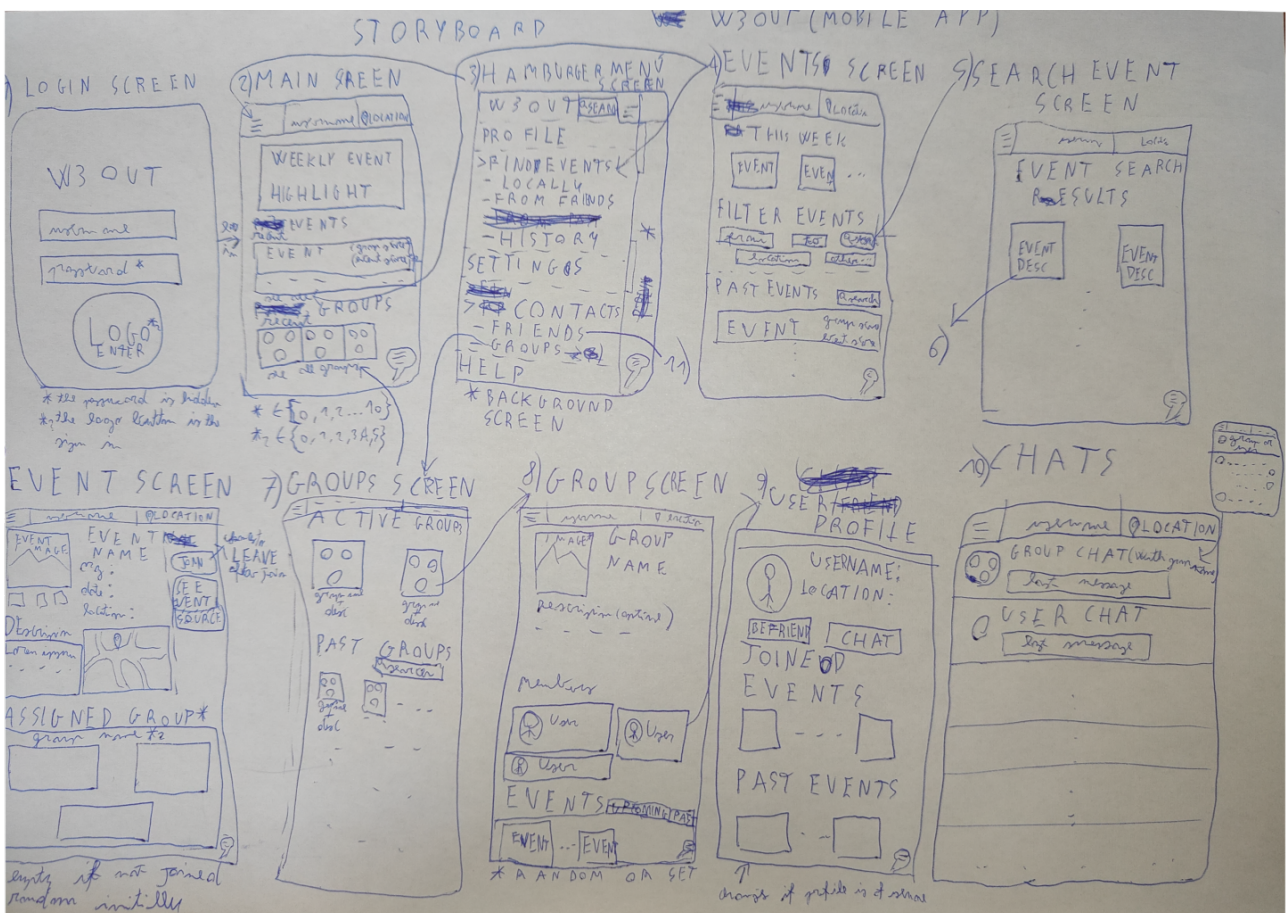 STORYBOARD
W3OUT (MOBILE APP)
1) LOGIN SCREEN
W3 OUT
username
password *
LOGO *2
ENTER
* the password is hidden
*2 the logo button is the
sign in
log
in
2) MAIN SREEN
username LOCATION
WEEKLY EVENT
HIGHLIGHT
recent EVENTS
EVENT (group score)*
(event score)*2
see all
recent GROUPS
see all groups
* ∈ {0,1,2...10}
*2 ∈ {0,1,2,3,4,5}
3) HAMBURGER MENU
SCREEN
W3OUT SEAR
PROFILE
>FIND EVENTS
- LOCALLY
- FROM FRIENDS
- HISTORY
SETTINGS
> CONTACTS
- FRIENDS
- GROUPS
HELP
*
* BACKGROUND
SCREEN
11)
4) EVENTS SCREEN
username LOCATIO
THIS WEEK
EVENT EVEN ...
FILTER EVENTS
from to
location other...
PAST EVENTS search
EVENT group score
event score
5) SEARCH EVENT
SCREEN
EVENT SEARCH
RESULTS
EVENT
DESC
EVENT
DESC
6)
EVENT SCREEN
username LOCATION
EVENT
IMAGE
EVENT
NAME
org:
date:
location:
JOIN
changes to
LEAVE
after join
SEE
EVENT
SOURCE
Description
Lorem ipsum
ASSIGNED GROUP*
group name *2
empty if not joined
random initilly
7) GROUPS SCREEN
ACTIVE GROUPS
group name
+ desc
group name
+ desc
PAST GROUPS
search
8) GROUP SCREEN
username location
IMAGE
GROUP
NAME
description (optional)
members
User
User
User
EVENTS UPCOMING PAST
EVENT ... EVENT
* RANDOM OR SET
9)
USER
PROFILE
USERNAME:
LOCATION:
BEFRIEND CHAT
JOINED
EVENTS
PAST EVENTS
10) CHATS
group or
user
username LOCATION
GROUP CHAT (with group name)
last message
USER CHAT
last message